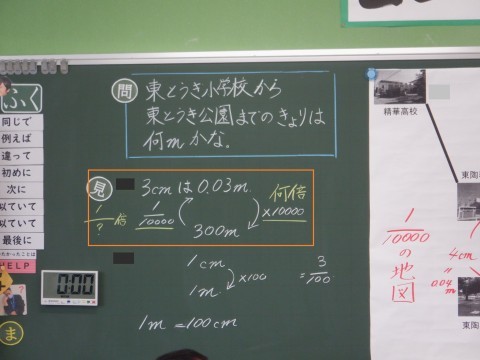 ふく
同じで
例えば
違って
初めに
次に
似ていて
似ていて
最後に
HELP
0:00
ま
問
東とうき小学校から
東とうき公園までのきょりは
何mかな。
見
3cmは0.03m
何倍
1/?倍
1/10000
×10000
300m
1cm
×100
=3/100
1m
1m=100cm
精華高校
東陶
1/10000の地図
4cm
〃
0.04m
東陶